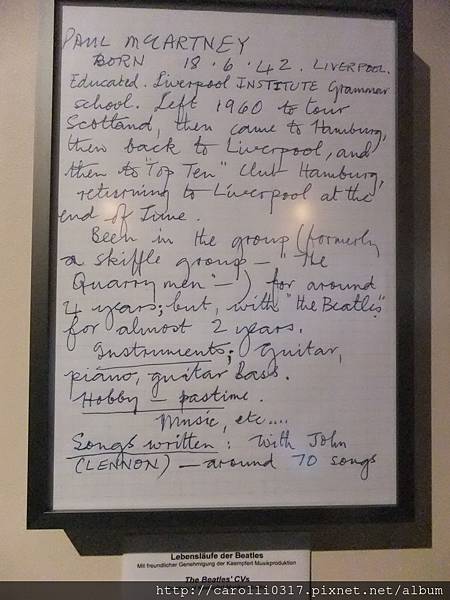 PAUL McCARTNEY
BORN 18.6.42. LIVERPOOL.
Educated. Liverpool INSTITUTE Grammar
school. Left 1960 to tour
Scotland, then came to Hamburg,
then back to Liverpool, and
then to "Top Ten" Club Hamburg,
returning to Liverpool at the
end of June.
Been in the group (formerly
a skiffle group — "The
Quarrymen" —) for around
4 years; but, with "the Beatles"
for almost 2 years.
Instruments; Guitar,
piano, guitar bass.
Hobby — pastime.
Music, etc....
Songs written: with John
(LENNON) — around 70 songs
Lebensläufe der Beatles
Mit freundlicher Genehmigung der Kaempfert Musikproduktion
The Beatles' CVs
http://carolli0317.pixnet.net/album